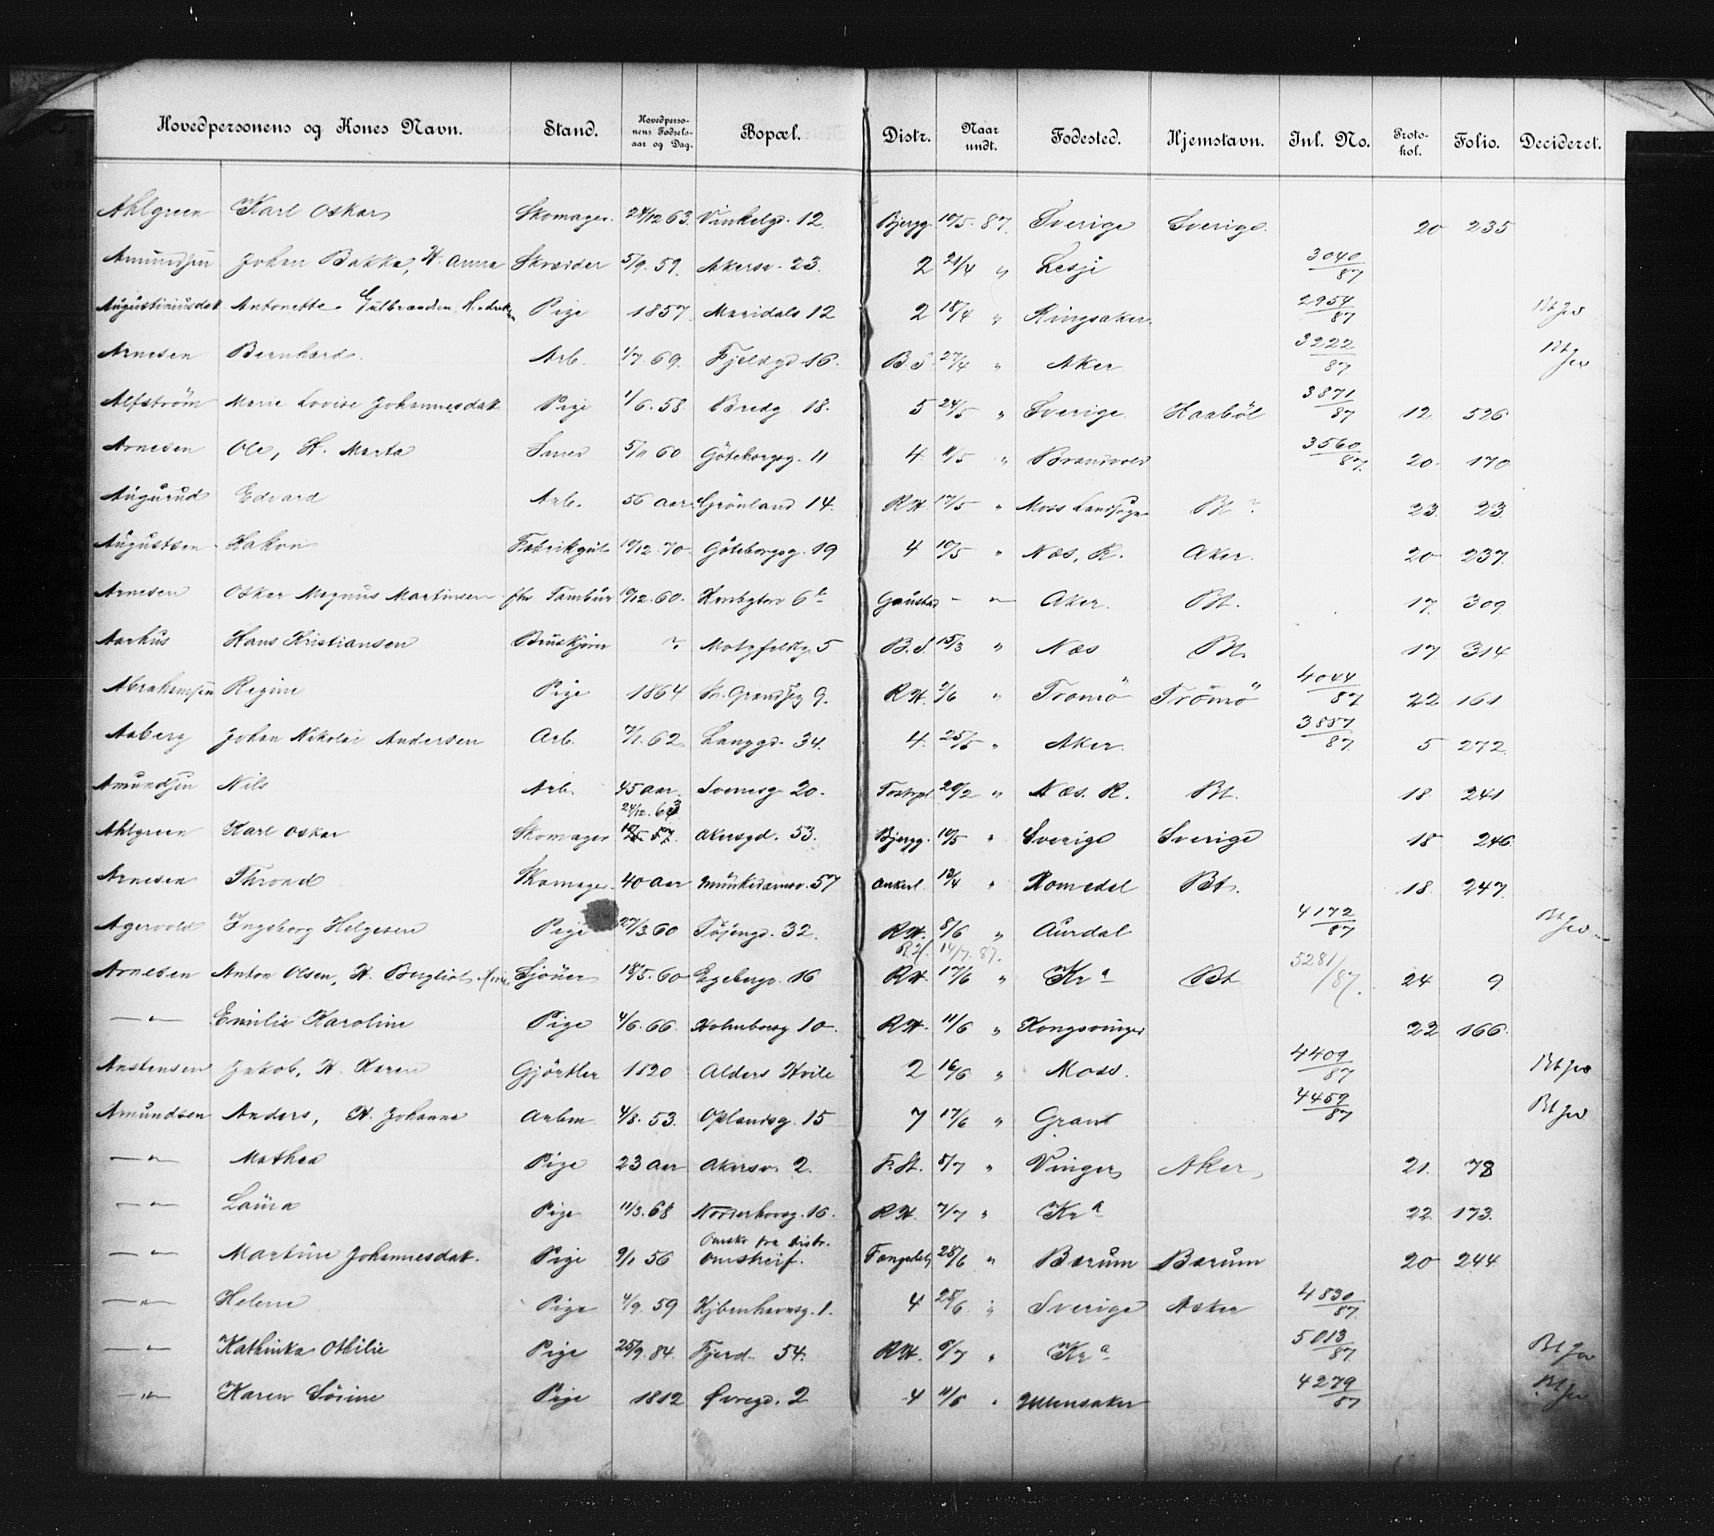 Hovedpersonens og Kones Navn. Stand. Hovedperso-nens Fødsels-aar og Dag. Bopæl. Distr. Naar undt. Fødested. Hjemstavn. Inl. No. Proto-kol. Folio. Decideret.
Ahlgreen Karl Oskar Skomager 24/12 63 Vinkelgd. 12 Bjergg. 10/5 87. Sverige Sverige. 20 235
Amundsen Johan Bakke, H. Anna Skræder 5/9. 59. Akersv. 23. 2 21/4 " Lesje 3040/87
Augustinusdat Antonette Gulbrandsen Pige 1857 Maridals 12 2 18/4 " Ringsaker. 2954/87 Bt Jev
Arnesen Bernhard. Arb. 1/7. 69. Fjeldgd 16. B S. 27/4 " Aker 3222/87 Bt Jev
Alfstrøm Marie Lovise Johannesdat Pige 1/6. 58 Bredg 18. 5 24/5 " Sverige. Haabøl 3871/87 12 526
Arnesen Ole, H. Marta Smed 5/11 60 Göteborgsg. 11 4. 11/5 " Brandvold 3560/87. 20. 170
Augurud Edvard Arb. 56 aar. Grönland 14. RH. 17/5 " Moss Landsogn Bt ? 23 23
Augustsen Hakon Fabrikgut 19/12. 70. Göteborgsg. 19 4 10/5 " Næs, R. Aker. 20 237.
Arnesen Oskar Magnus Martinsen fhv Tambur 19/12. 60. 6 Gaustad - " Aker. Bt. 17. 309
Aarhus Hans Kristiansen Bruskjører ? Motzfeldtg. 5 B. S. 15/3 " Næs Bt. 17 314
Abrahamsen Regine Pige 1864 St. Grændseg 9. RH. 2/6 " Tromö Tromö 4044/87 22 161
Aaberg Johan Nikolai Andersen Arb. 7/1. 62. Langgd. 34. 4. 25/5 " Aker 3887/87 5 272.
Amundsen Nils Arb. 45 aar. Svensg 20. 20/2 " Næs. R. Bt. 18 241
24/12. 63
Ahlgreen Karl Oskar Skomager 10/5 87. Akersgd. 53. Bjergg. 10/5 " Sverige Sverige 18 246
Arnesen Thrond Skomager 40 Aar Munkedamsv. 57 Ankerl. 12/4 " Romedal Bt. 18 247.
Agervold Ingeborg Helgesen Pige 27/3 60 Töjengd. 32. RH. 8/6 " Aurdal 4172/87 Bt Jev.
14/7. 87.
Arnesen Anton Olsen, H. Bergliot Sjöuer 18/5. 60 Egebergv. 16 RH. 17/6 " Kra Bt 5281/87. 24 9
— " — Emilie Karoline Pige 4/6. 66. Holmborsg 10 RH. 11/6 " Kongsvinger 22 166
Anstensen Jakob, H. Karen Gjörtler 1820 Alders Hvile 2 16/6 " Moss. 4409/87 Bt Jev
Amundsen Anders, H. Johanne Arbm 4/8. 53. Oplandsg. 15 7 17/6 " Gran 4459/87 Bt Jev
— " — Mathea Pige 23 Aar Akersv. 2. F. St. 5/7 " Vinger Aker 21. 78
— " — Laura Pige 11/3. 68 Norderhovsg. 16. RH. 7/7 " Kra 22 173.
— " — Martine Johannesdat. Pige 9/1 56 omskrif. Fangselet 28/6 " Bærum Bærum 20 244
— " — Helene Pige 4/9. 59 Kjbenhavnsg. 1. 4 28/6 " Sverige Asker 4830/87.
— " — Kathinka Othilie Pige 25/9. 84. Fjerd 54. RH. 6/7 " Kra 5013/87. Bt Jev
— " — Karen Sörine Pige 1812 Øvregd. 2 4 11/6 " Ullensaker 4279/87 Bt Jev